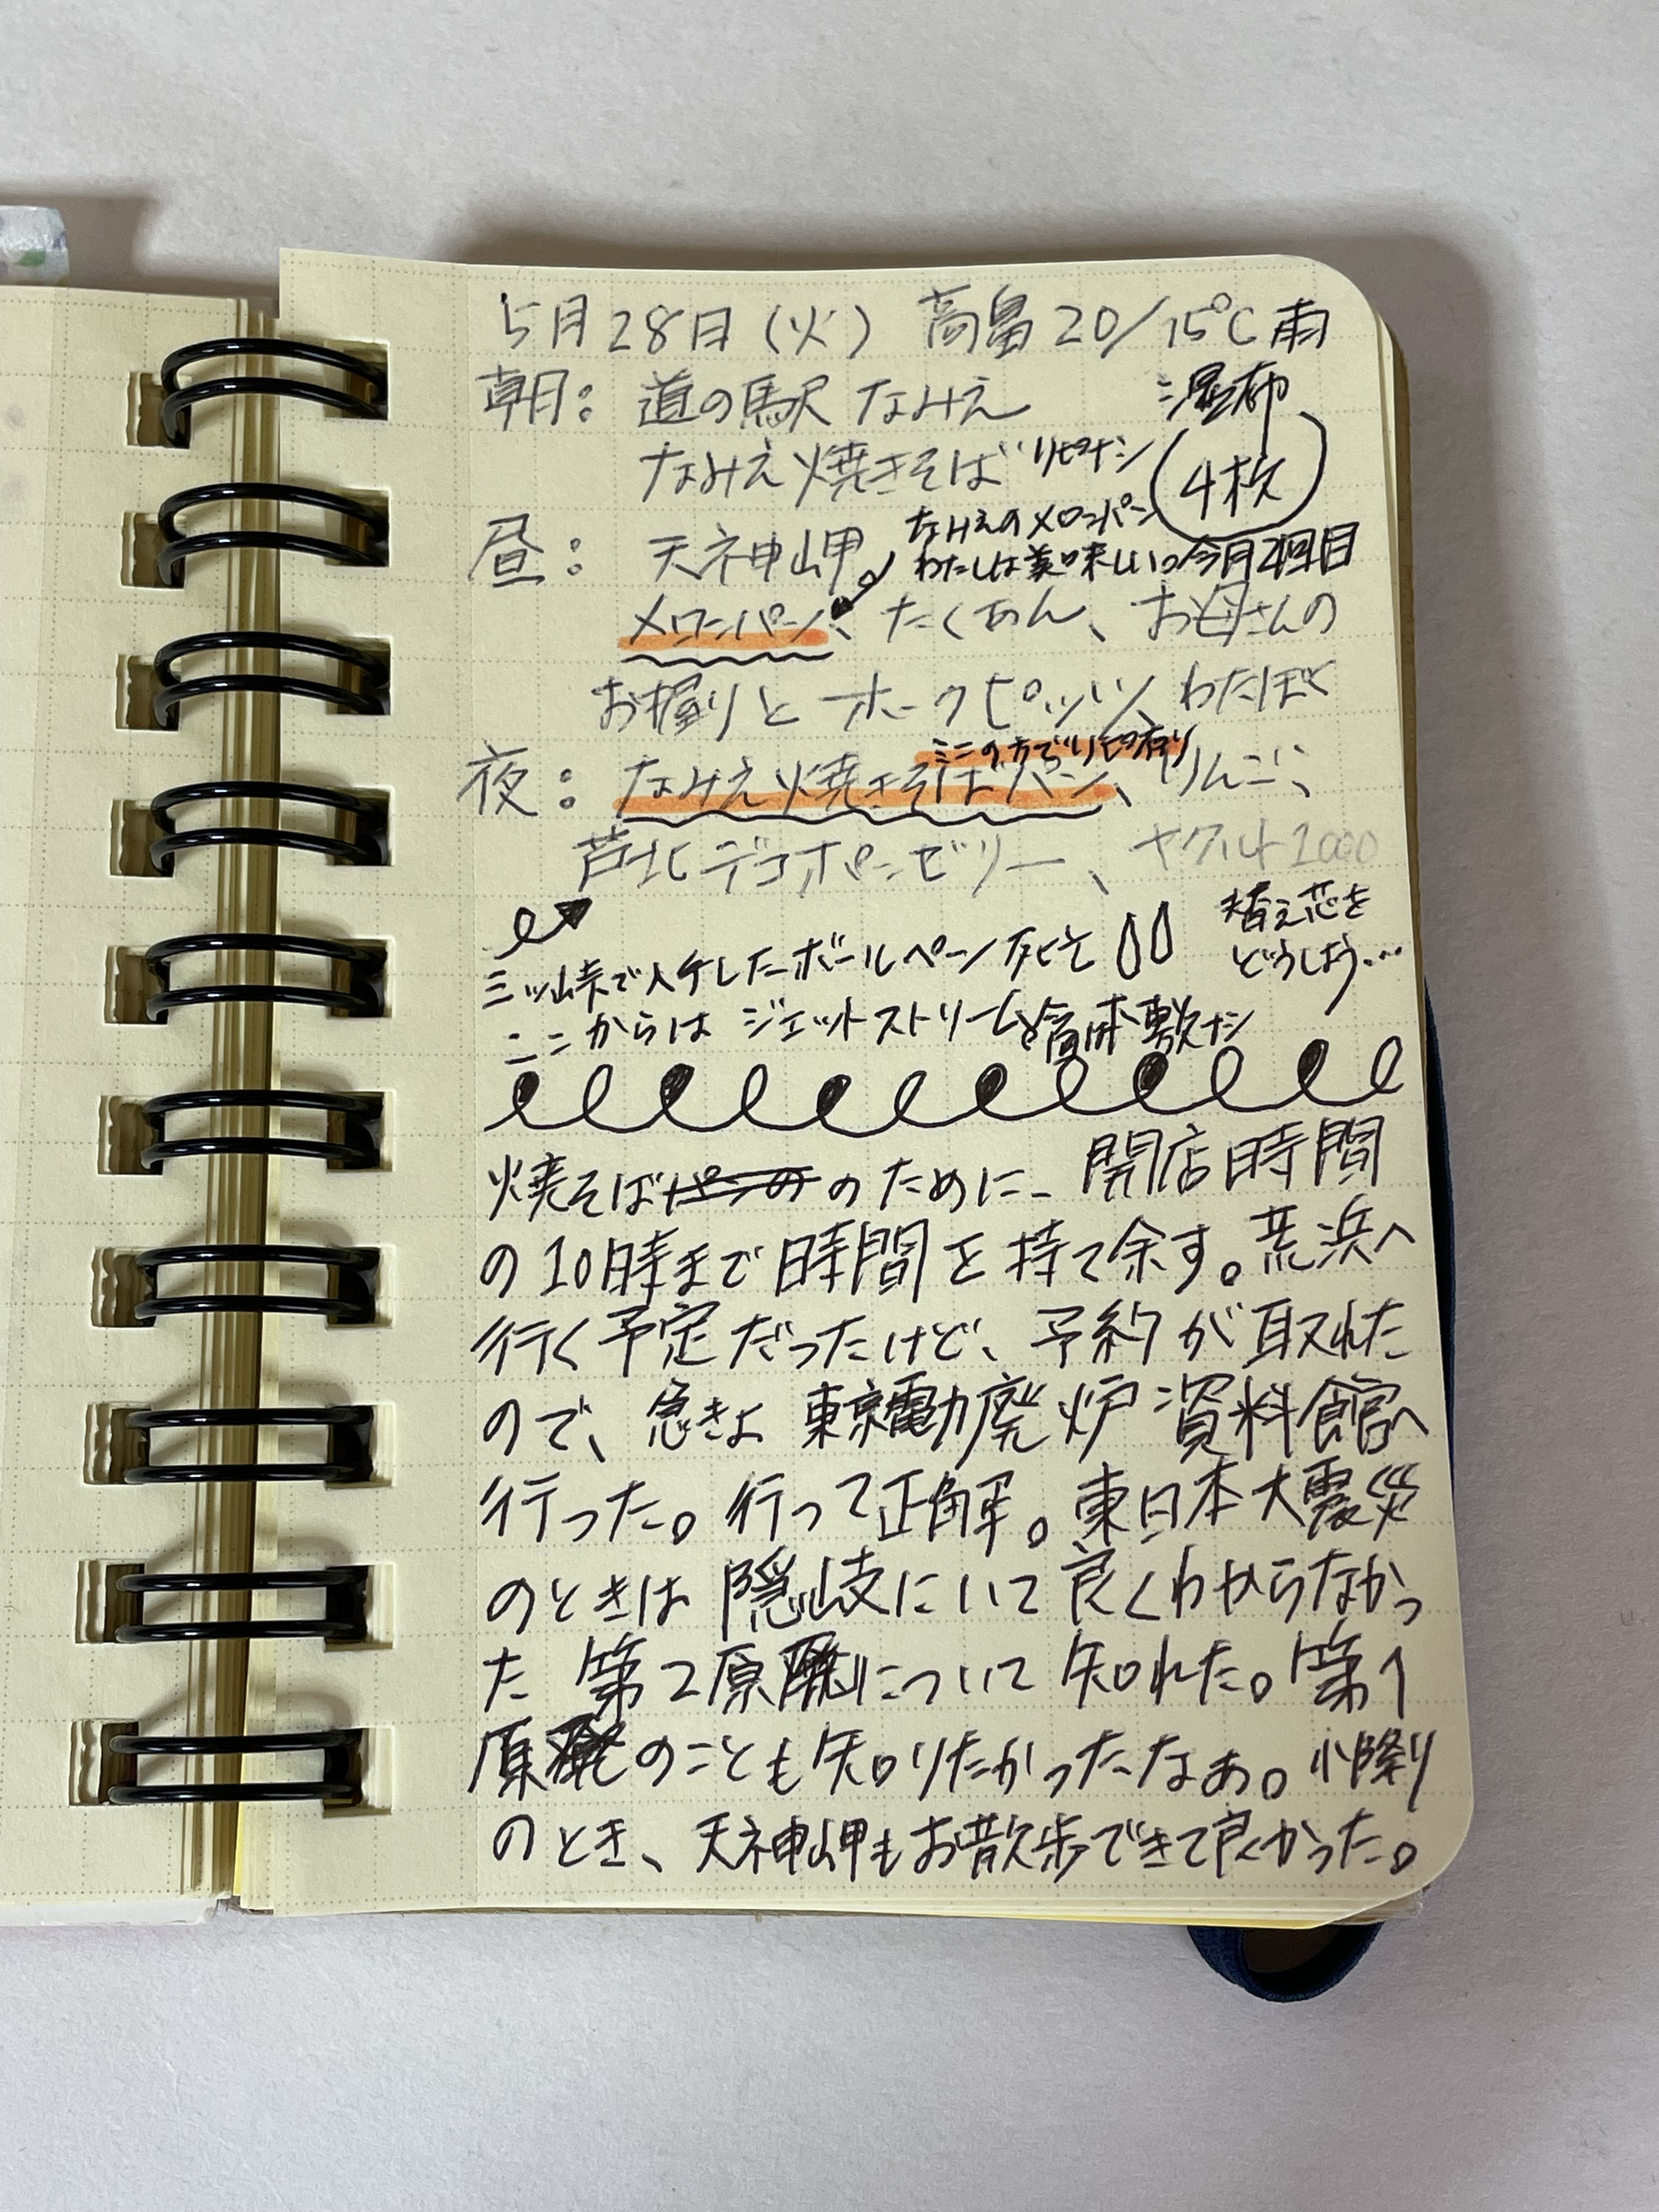 5月28日(火) 高畠20/15℃雨
朝: 道の駅 なみえ
湿布
4枚
なみえ焼きそば リピナシ
昼: 天神岬
なみえのメロンパン
わたしは美味しい。今月2回目
メロンパン、たくあん、お母さんの
お握りとホークピッツ、わたぼく
ミニの方でリピ有り
夜: なみえ焼きそばパン、りんご、
芦北デコポンゼリー、ヤクルト1000
三ッ峠で入手したボールペン死亡
替え芯を
どうしよう…
ここからはジェットストリーム
焼そばパンののために、開店時間
の10時まで時間を持て余す。荒浜へ
行く予定だったけど、予約が取れた
ので、急きょ東京電力廃炉資料館へ
行った。行って正解。東日本大震災
のときは隠岐にいて良くわからなかっ
た第2原発について知れた。第1
原発のことも知りたかったなぁ。小降り
のとき、天神岬もお散歩できて良かった。